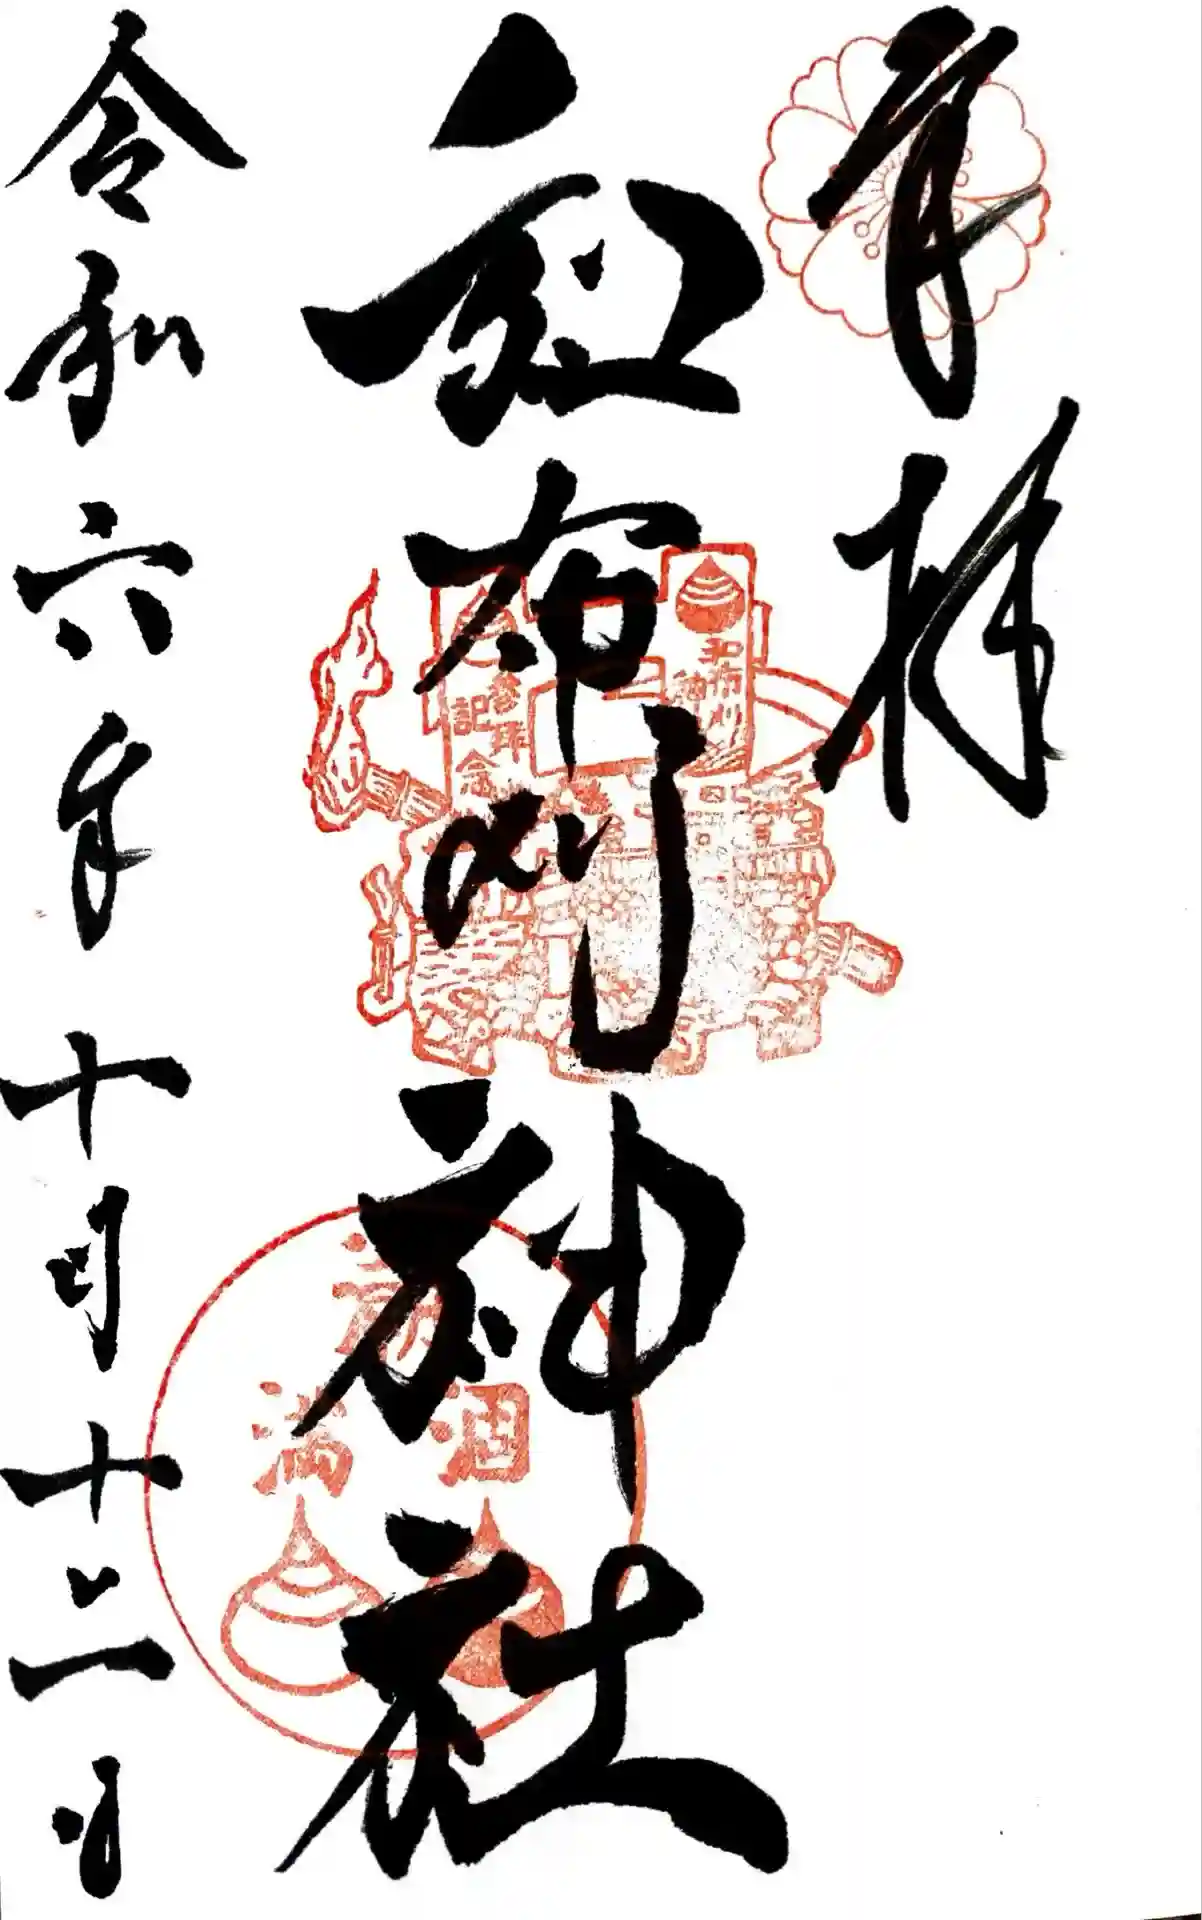 奉拝
和布刈神社
令和六年十月十二日
和布刈神
参拝
記念
満
潮